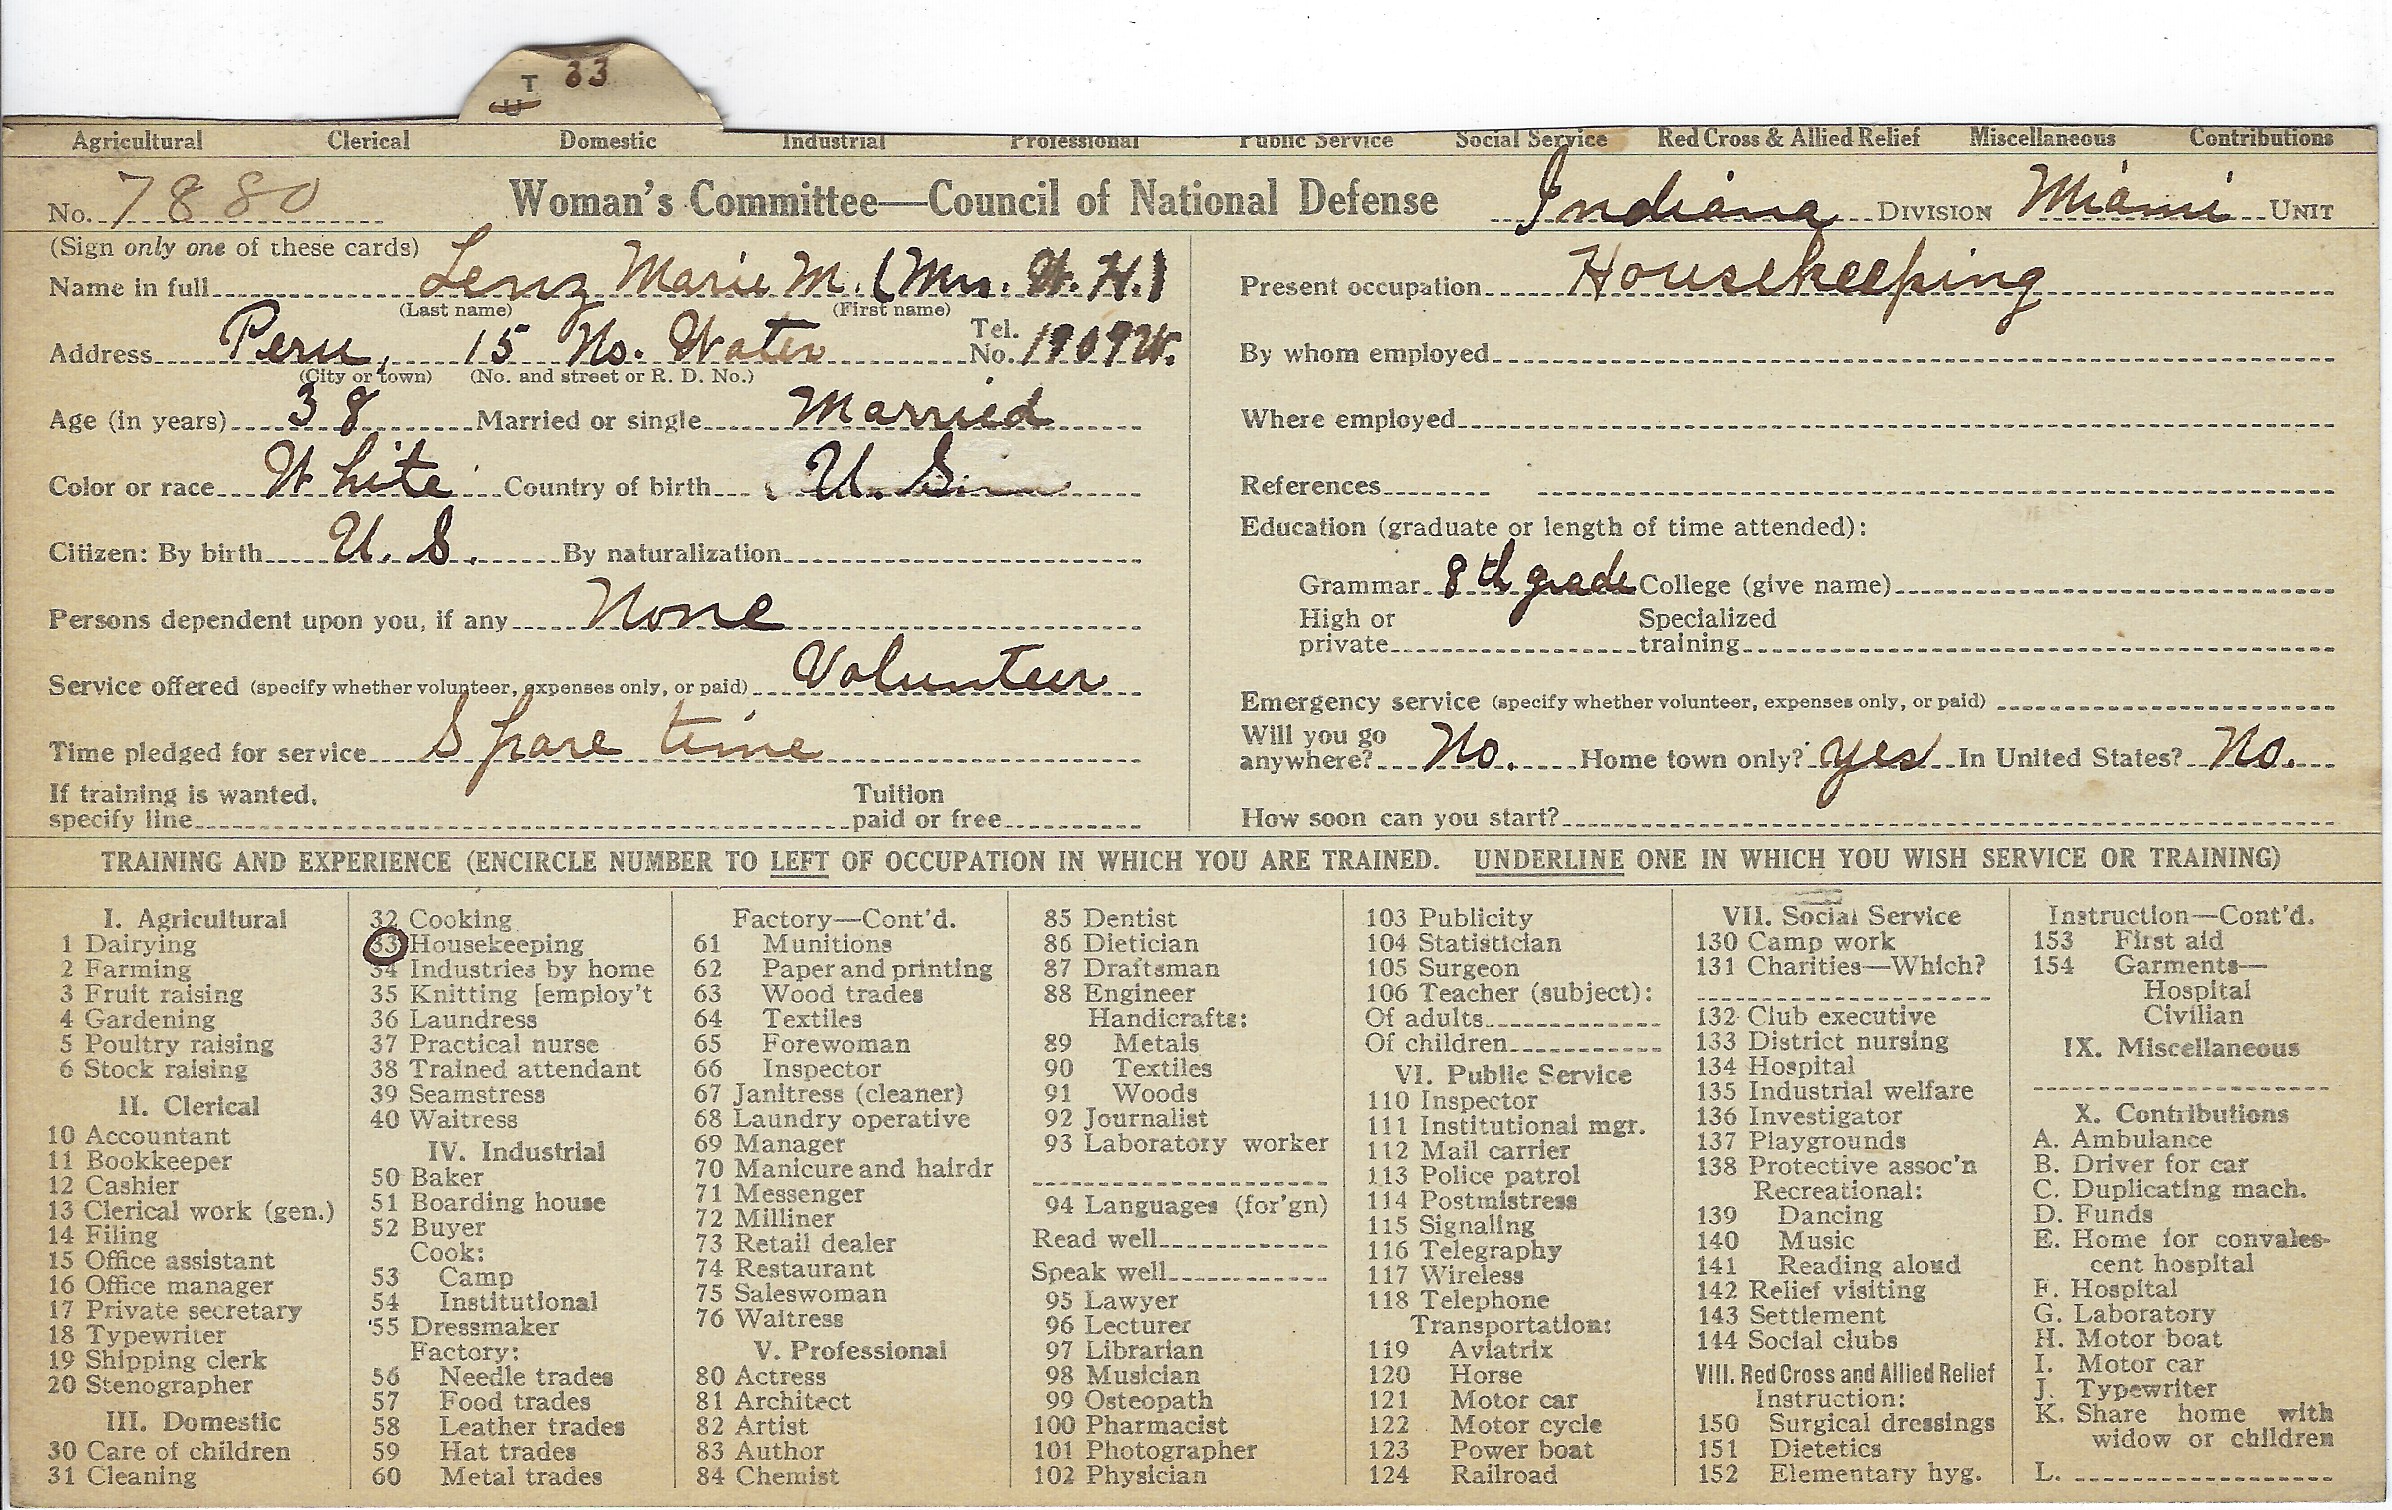 T 33
U
Agricultural Clerical Domestic Industrial Professional Public Service Social Service Red Cross & Allied Relief Miscellaneous Contributions
No. 7880 Woman's Committee—Council of National Defense Indiana DIVISION Miami UNIT
(Sign only one of these cards)
Name in full Lenz Marie M. (Mrs. W. H.)
(Last name) (First name)
Address Peru, 15 No. Water Tel. No. 1909W.
(City or town) (No. and street or R. D. No.)
Age (in years) 38 Married or single Married
Color or race White Country of birth U. S.
Citizen: By birth U. S. By naturalization
Persons dependent upon you, if any None
Service offered (specify whether volunteer, expenses only, or paid) Volunteer
Time pledged for service Spare time
If training is wanted, specify line Tuition paid or free
Present occupation Housekeeping
By whom employed
Where employed
References
Education (graduate or length of time attended):
Grammar 8th grade College (give name)
High or private Specialized training
Emergency service (specify whether volunteer, expenses only, or paid)
Will you go anywhere? No. Home town only? yes In United States? No.
How soon can you start?
TRAINING AND EXPERIENCE (ENCIRCLE NUMBER TO LEFT OF OCCUPATION IN WHICH YOU ARE TRAINED. UNDERLINE ONE IN WHICH YOU WISH SERVICE OR TRAINING)
I. Agricultural
1 Dairying
2 Farming
3 Fruit raising
4 Gardening
5 Poultry raising
6 Stock raising
II. Clerical
10 Accountant
11 Bookkeeper
12 Cashier
13 Clerical work (gen.)
14 Filing
15 Office assistant
16 Office manager
17 Private secretary
18 Typewriter
19 Shipping clerk
20 Stenographer
III. Domestic
30 Care of children
31 Cleaning
32 Cooking
33 Housekeeping
34 Industries by home
35 Knitting [employ't
36 Laundress
37 Practical nurse
38 Trained attendant
39 Seamstress
40 Waitress
IV. Industrial
50 Baker
51 Boarding house
52 Buyer
Cook:
53 Camp
54 Institutional
55 Dressmaker
Factory:
56 Needle trades
57 Food trades
58 Leather trades
59 Hat trades
60 Metal trades
Factory—Cont'd.
61 Munitions
62 Paper and printing
63 Wood trades
64 Textiles
65 Forewoman
66 Inspector
67 Janitress (cleaner)
68 Laundry operative
69 Manager
70 Manicure and hairdr
71 Messenger
72 Milliner
73 Retail dealer
74 Restaurant
75 Saleswoman
76 Waitress
V. Professional
80 Actress
81 Architect
82 Artist
83 Author
84 Chemist
85 Dentist
86 Dietician
87 Draftsman
88 Engineer
Handicrafts:
89 Metals
90 Textiles
91 Woods
92 Journalist
93 Laboratory worker
94 Languages (for'gn)
Read well
Speak well
95 Lawyer
96 Lecturer
97 Librarian
98 Musician
99 Osteopath
100 Pharmacist
101 Photographer
102 Physician
103 Publicity
104 Statistician
105 Surgeon
106 Teacher (subject):
Of adults
Of children
VI. Public Service
110 Inspector
111 Institutional mgr.
112 Mail carrier
113 Police patrol
114 Postmistress
115 Signaling
116 Telegraphy
117 Wireless
118 Telephone
Transportation:
119 Aviatrix
120 Horse
121 Motor car
122 Motor cycle
123 Power boat
124 Railroad
VII. Social Service
130 Camp work
131 Charities—Which?
132 Club executive
133 District nursing
134 Hospital
135 Industrial welfare
136 Investigator
137 Playgrounds
138 Protective assoc'n
Recreational:
139 Dancing
140 Music
141 Reading aloud
142 Relief visiting
143 Settlement
144 Social clubs
VIII. Red Cross and Allied Relief
Instruction:
150 Surgical dressings
151 Dietetics
152 Elementary hyg.
Instruction—Cont'd.
153 First aid
154 Garments—
Hospital
Civilian
IX. Miscellaneous
X. Contributions
A. Ambulance
B. Driver for car
C. Duplicating mach.
D. Funds
E. Home for convales-
cent hospital
F. Hospital
G. Laboratory
H. Motor boat
I. Motor car
J. Typewriter
K. Share home with
widow or children
L.